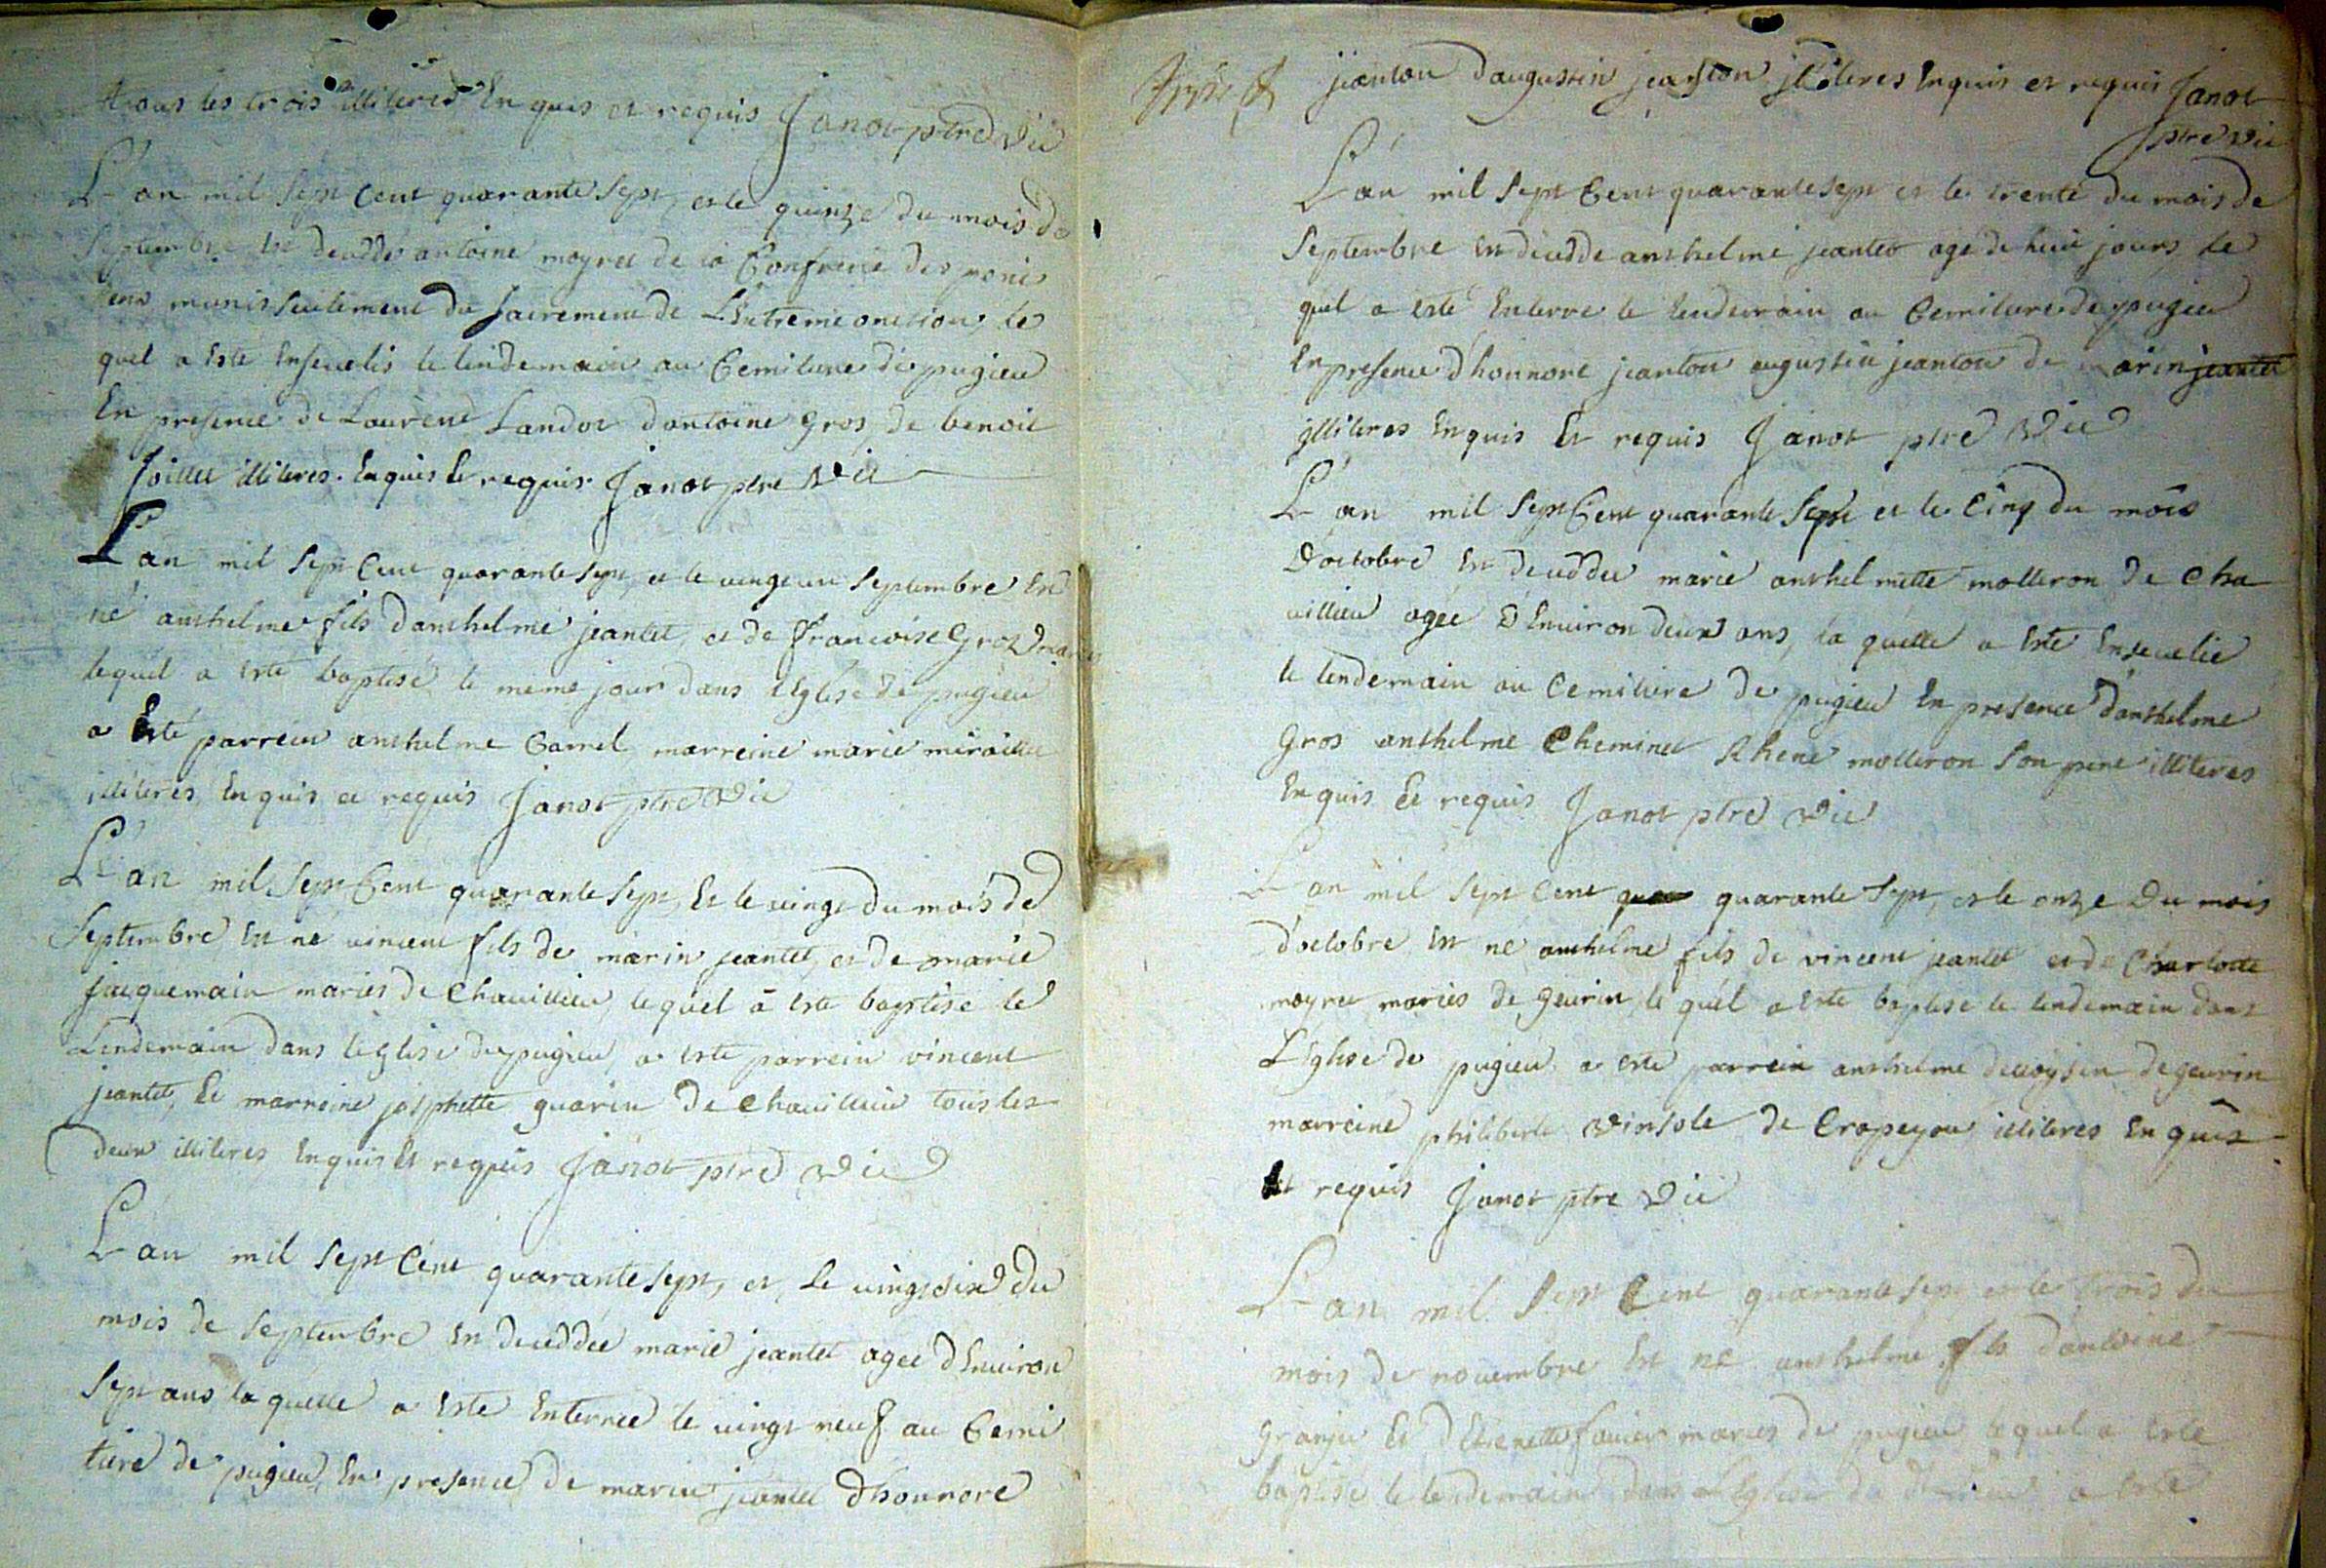 tous les trois illiteres Enquis et requis Janot ptre vic
L'an mil sept Cent quarante sept, et le quinze du mois de
septembre est deuddé antoine moyret de la Confrerie des peniș
tens munis seulement du sacrement de L'Extreme onction, le
quel a esté Ensevelis le lendemain au Cemitiere de pugieu
En presence de Laurent Landot d'antoine gros de benoit
illiteres. Enquis et requis Janot ptre vic
L'an mil sept Cent quarante sept, et le vingt un septembre Est
né anthelme fils d'anthelme jeantet, et de francoise Gros mariés
lequel a esté baptisé le même jour dans l'Eglise de pugieu
a Esté parrein anthelme Carrel, marreine marie miraillet
illiteres, Enquis et requis Janot ptre vic
L'an mil sept Cent quarante sept, Et le vingt du mois de
septembre Est né vincent fils de marin jeantet, et de marie
jacquemain mariés de Chavillieu, lequel a esté baptisé le
Lendemain dans l'eglise de pugieu, a esté parrein vincent
jeantet, Et marreine josphette guarin de Chavillieu tous les
deux illiteres Enquis Et requis Janot ptre vic
L'an mil sept Cent quarante sept, et Le vingt six du
mois de septembre Est deuddée marie jeantet agée d'Environ
sept ans laquelle a Esté Enterrée le vingt neuf au Cemi
tiere de pugieu, En presence de marin jeantet d'honnoré
jeanton d'augustin jeanton illiteres Enquis et requis Janot
ptre vic
L'an mil sept Cent quarante sept et le trente du mois de
septembre Est deuddé anthelme jeantet agé de huit jours, le
quel a esté Enterré le lendemain au Cemitiere de pugieu
En presence d'honnoré jeanton augustin jeanton de marin jeantet
illiteres Enquis Et requis Janot ptre Vic
L'an mil sept Cent quarante sept et le Cinq du mois
d'octobre Est deuddée marie anthelmette molleron de Cha
villieu agée d'Environ deux ans, la quelle a Esté Ensevelie
le lendemain au Cemitiere de pugieu En presence d'anthelme
Gros anthelme Cheminet Rhené molleron son pere illiteres
Enquis Et requis Janot ptre vic
L'an mil sept Cent quarante sept, et le onze Du mois
d'octobre Est né anthelme fils de vincent jeantet et de Charlotte
moyret mariés de geurin, le quel a esté baptisé le lendemain dans
L'Eglise de pugieu a esté parrein anthelme de geurin
marreine philiberte vinsole de Cropeyou illiteres Enquis
Et requis Janot ptre Vic
L'an mil sept Cent quarante sept et le trois du
mois de novembre Est né anthelme fils d'antoine
Granju Et d'Etienette mariés de pugieu lequel a esté
baptisé le lendemain dans l'Eglise a esté